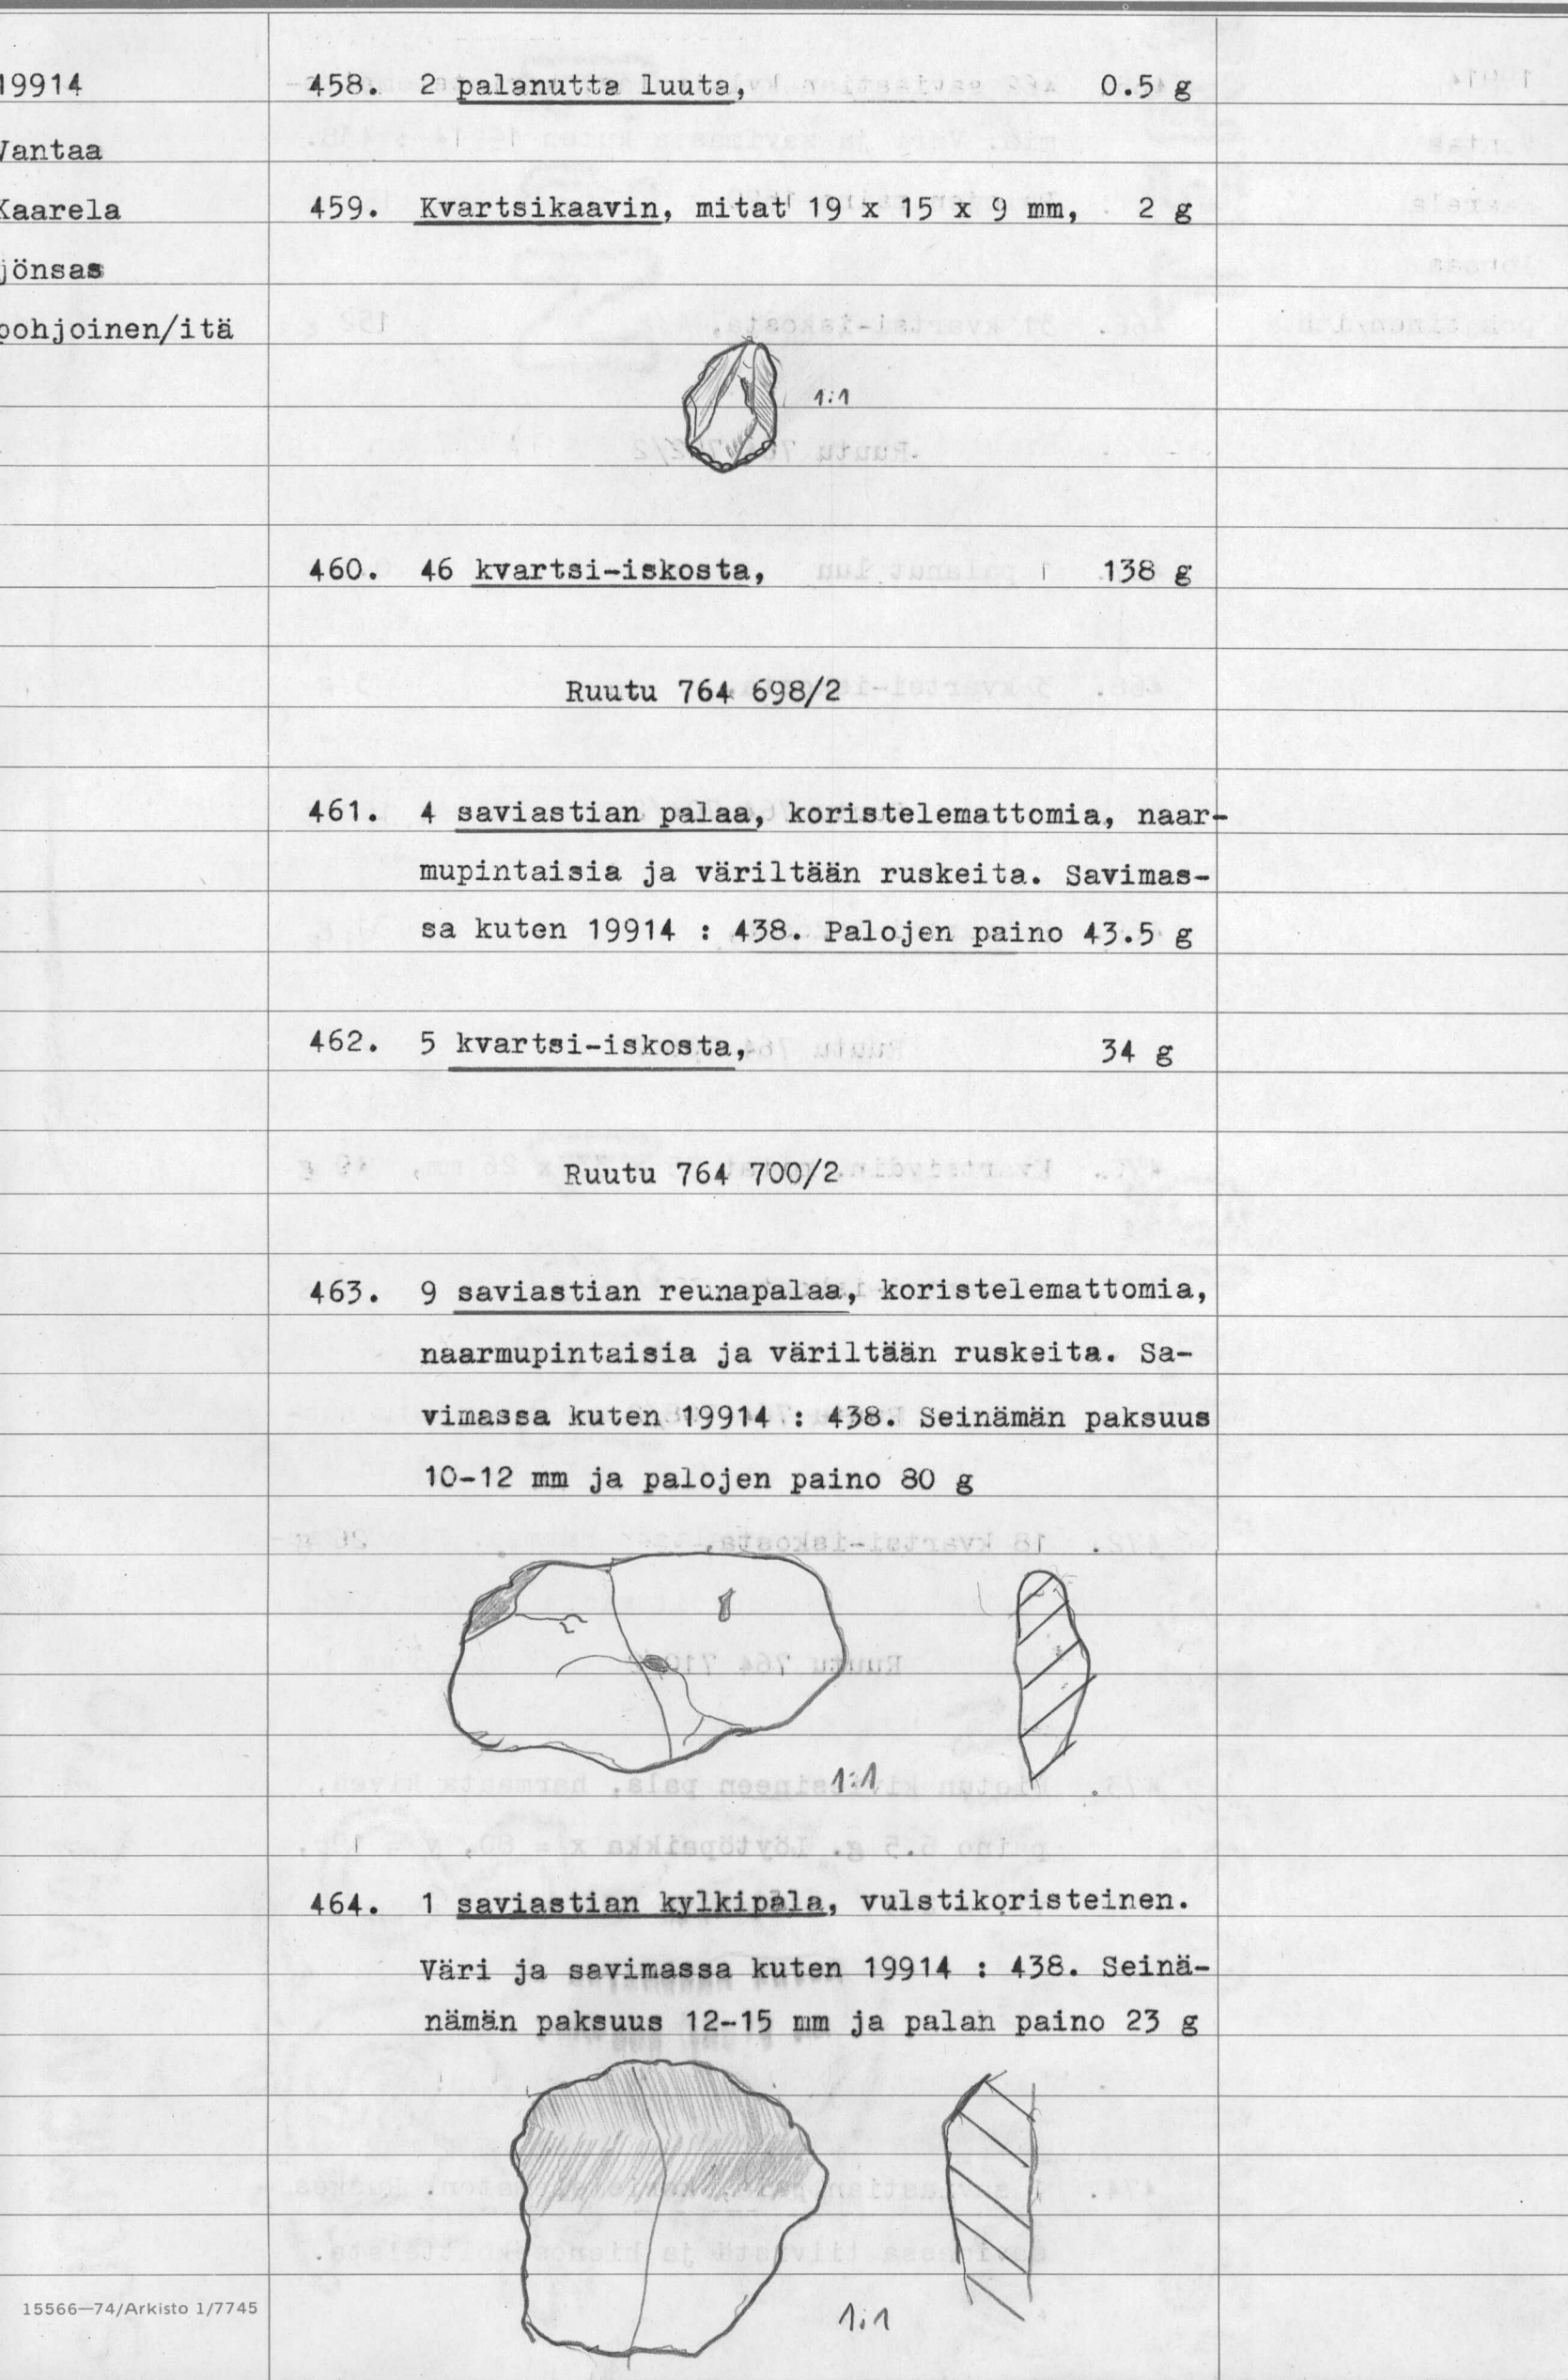 19914 458. 2 palanutta luuta, 0.5 g
Vantaa
Kaarela 459. Kvartsikaavin, mitat 19 x 15 x 9 mm, 2 g
jönsas
pohjoinen/itä
1:1
460. 46 kvartsi-iskosta, 138 g
Ruutu 764 698/2
461. 4 saviastian palaa, koristelemattomia, naar-
mupintaisia ja väriltään ruskeita. Savimas-
sa kuten 19914 : 438. Palojen paino 43.5 g
462. 5 kvartsi-iskosta, 34 g
Ruutu 764 700/2
463. 9 saviastian reunapalaa, koristelemattomia,
naarmupintaisia ja väriltään ruskeita. Sa-
vimassa kuten 19914 : 438. Seinämän paksuus
10-12 mm ja palojen paino 80 g
1:1
464. 1 saviastian kylkipala, vulstikoristeinen.
Väri ja savimassa kuten 19914 : 438. Seinä-
nämän paksuus 12-15 mm ja palan paino 23 g
1:1
15566—74/Arkisto 1/7745